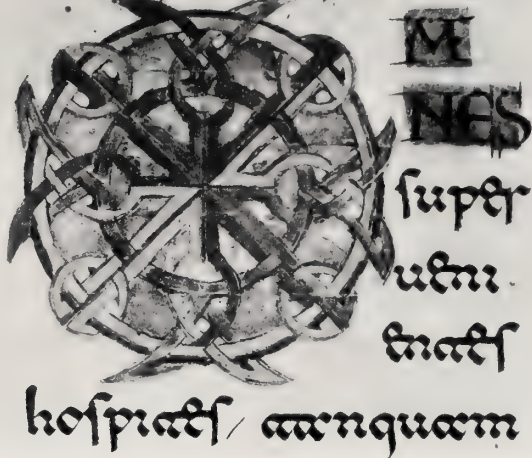 OM
NES
super
ueni
entes
hospites / tanquam